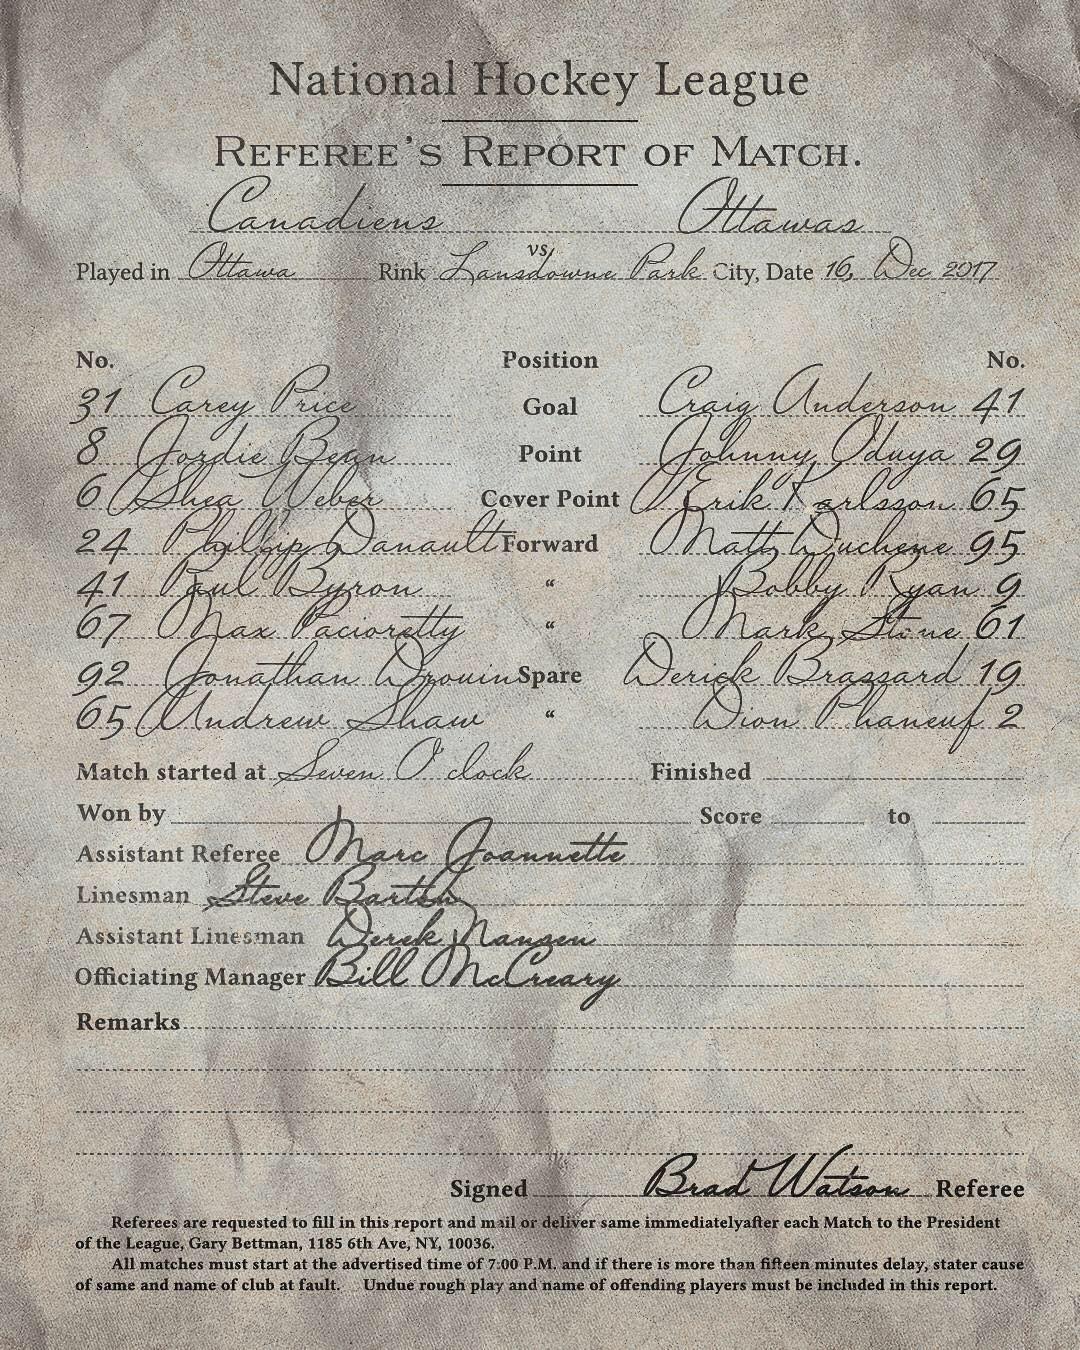 National Hockey League
REFEREE'S REPORT OF MATCH.
Canadiens vs. Ottawas
Played in Ottawa Rink Lansdowne Park City, Date 16, Dec 2017
No. Position No.
31 Carey Price Goal Craig Anderson 41
8 Jordie Benn Point Johnny Oduya 29
6 Shea Weber Cover Point Erik Karlsson 65
24 Phillip Danault Forward Matt Duchene 95
41 Paul Byron “ Bobby Ryan 9
67 Max Pacioretty “ Mark Stone 61
92 Jonathan Drouin Spare Derick Brassard 19
65 Andrew Shaw “ Dion Phaneuf 2
Match started at Seven O'clock Finished
Won by Score to
Assistant Referee Marc Joannette
Linesman Steve Barton
Assistant Linesman Derek Nansen
Officiating Manager Bill McCreary
Remarks
Signed Brad Watson Referee
Referees are requested to fill in this report and mail or deliver same immediatelyafter each Match to the President
of the League, Gary Bettman, 1185 6th Ave, NY, 10036.
All matches must start at the advertised time of 7:00 P.M. and if there is more than fifteen minutes delay, stater cause
of same and name of club at fault. Undue rough play and name of offending players must be included in this report.